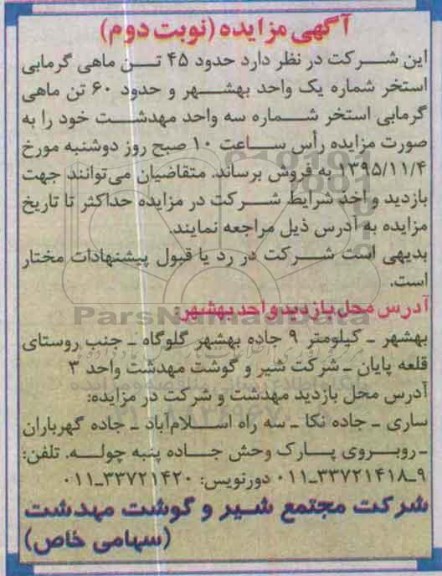 آگهی مزایده (نوبت دوم)
این شرکت در نظر دارد حدود ۴۵ تن ماهی گرمابی
استخر شماره یک واحد بهشهر و حدود ۶۰ تن ماهی
گرمابی استخر شماره سه واحد مهدشت خود را به
صورت مزایده رأس ساعت ۱۰ صبح روز دوشنبه مورخ
۱۳۹۵/۱۱/۴ به فروش برساند. متقاضیان می‌توانند جهت
بازدید و اخذ شرایط شرکت در مزایده حداکثر تا تاریخ
مزایده به آدرس ذیل مراجعه نمایند.
بدیهی است شرکت در رد یا قبول پیشنهادات مختار
است.
آدرس محل بازدید واحد بهشهر:
بهشهر ـ کیلومتر ۹ جاده بهشهر گلوگاه ـ جنب روستای
قلعه پایان ـ شرکت شیر و گوشت مهدشت واحد ۳
آدرس محل بازدید مهدشت و شرکت در مزایده:
ساری ـ جاده نکا ـ سه راه اسلام‌آباد ـ جاده گهرباران
ـ روبروی پارک وحش جاده پنبه چوله. تلفن:
۹ـ۳۳۷۲۱۴۱۸ـ۰۱۱ دورنویس: ۳۳۷۲۱۴۲۰ـ۰۱۱
شرکت مجتمع شیر و گوشت مهدشت
(سهامی خاص)
ParsNamadData